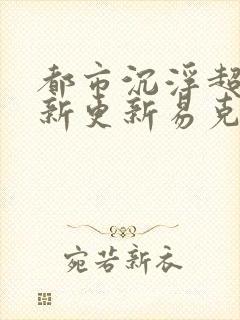 都市沉浮超
新更新易克
宛若新衣